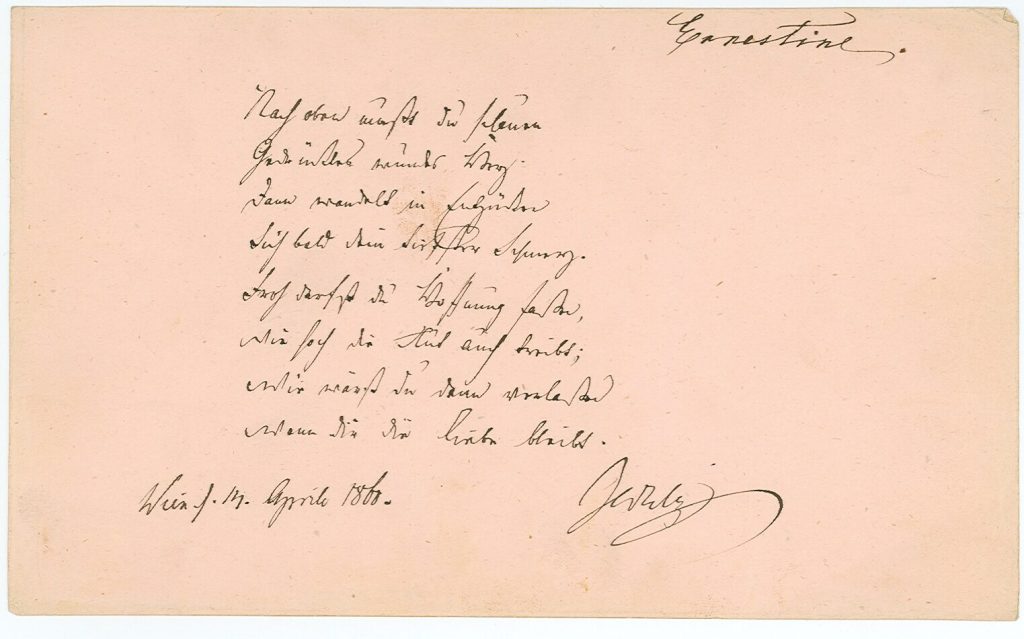 Ernestine.
Nach oben mußt du schauen
Gedrücktes wundes Herz.
Dann wandelt in Entzücken
Sich bald dein tiefster Schmerz.
Froh darfst du Hoffnung faßen,
Wie hoch die Flut auch treibt;
Wie wärst du denn verlaßen
Wenn dir die Liebe bleibt.
Wien d. April 1860.
Zedlitz